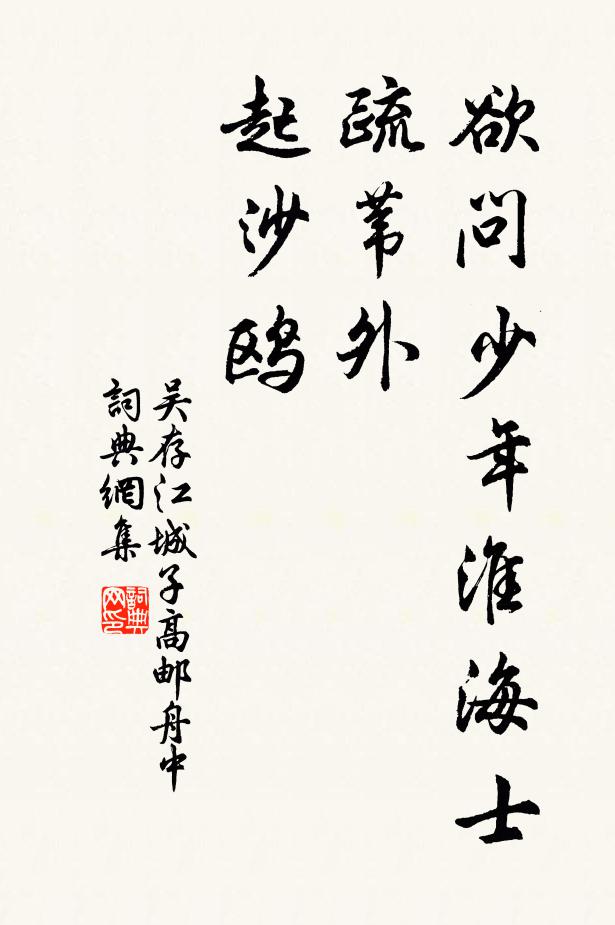 欲问少年淮海士
疏苇外
起沙鸥
吴存江城子高邮舟中
詞典網集
詞典
网印